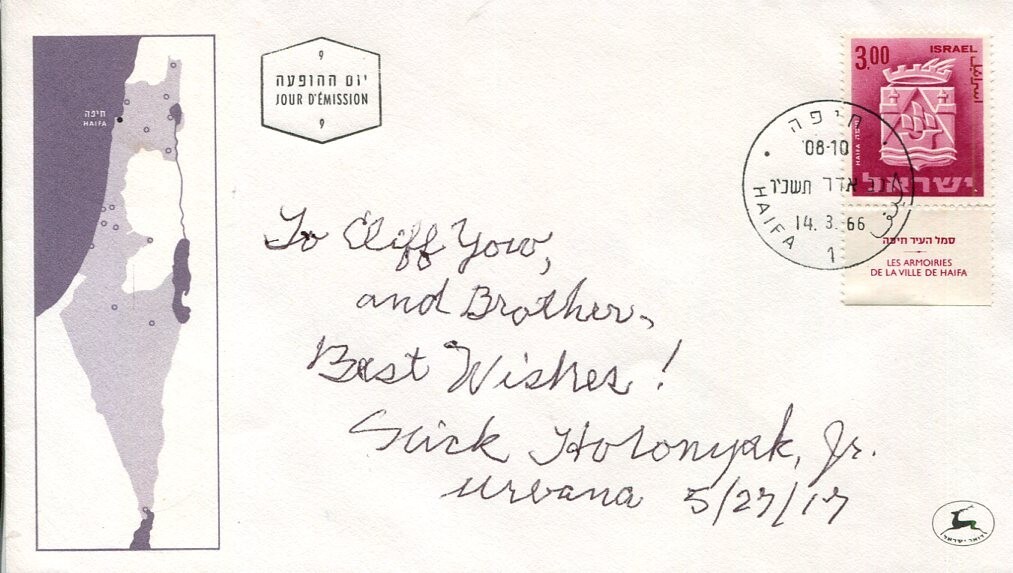 חיפה
HAIFA
יום ההופעה
JOUR D'ÉMISSION
3.00
ISRAEL
اسرائيل
חיפה HAIFA
ישראל
חיפה
08-10
כב אדר תשכ"ו
14.3.66
HAIFA
حيفا
1
סמל העיר חיפה
LES ARMOIRIES
DE LA VILLE DE HAIFA
To Cliff Yow,
and Brother,
Best Wishes!
Nick Holonyak, Jr.
Urbana 5/27/17
דואר ישראל